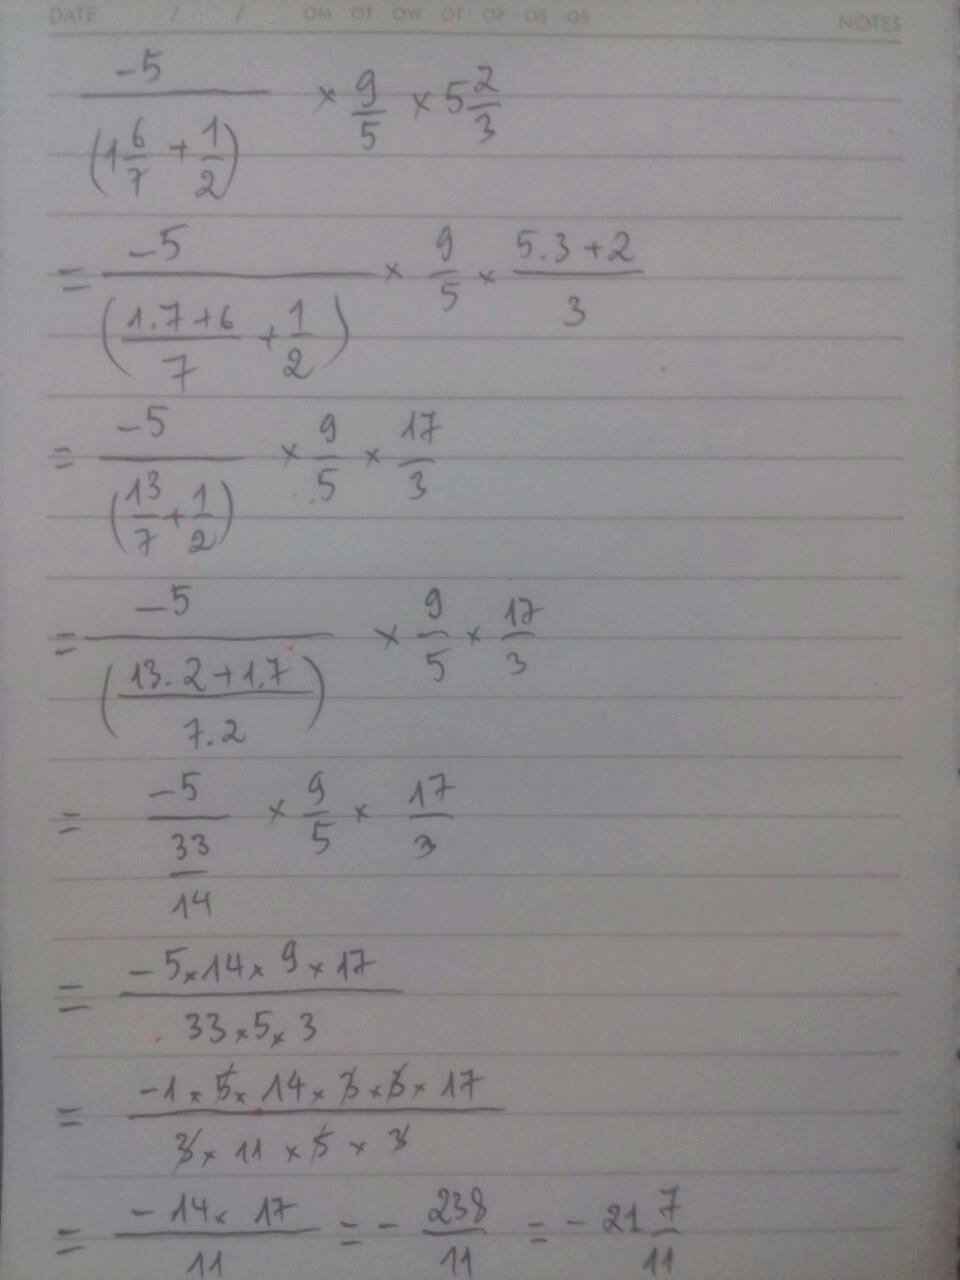 DATE / / OM OT OW OT OF OS OS NOTES
-5/(1 6/7 + 1/2) × 9/5 × 5 2/3
= -5/((1.7+6)/7 + 1/2) × 9/5 × (5.3+2)/3
= -5/(13/7 + 1/2) × 9/5 × 17/3
= -5/((13.2+1.7)/(7.2)) × 9/5 × 17/3
= -5/(33/14) × 9/5 × 17/3
= (-5×14×9×17)/(33×5×3)
= (-1×5×14×3×3×17)/(3×11×5×3)
= (-14×17)/11 = - 238/11 = - 21 7/11